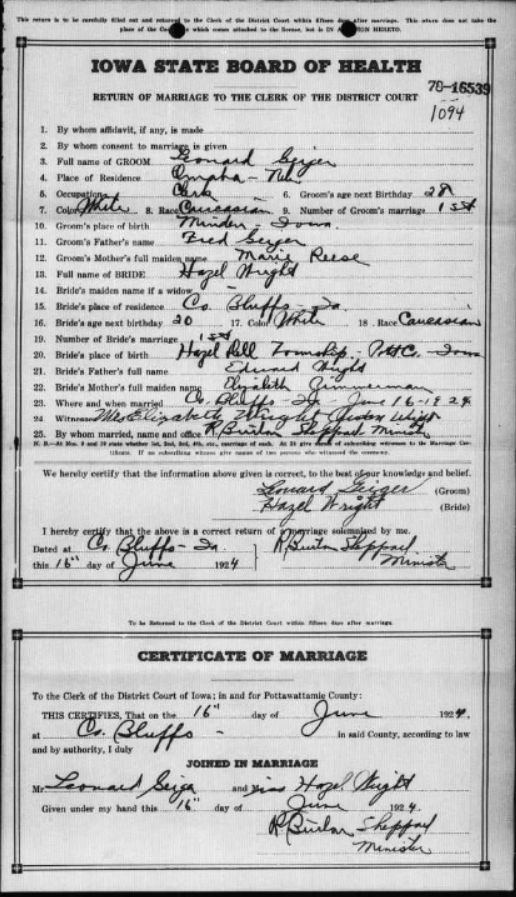 This return is to be carefully filled out and returned to the Clerk of the District Court within fifteen days after marriage. This return does not take the
place of the which comes attached to the license, but is IN HERETO.
IOWA STATE BOARD OF HEALTH
70-16539
RETURN OF MARRIAGE TO THE CLERK OF THE DISTRICT COURT
1094
1. By whom affidavit, if any, is made
2. By whom consent to marriage is given
3. Full name of GROOM Leonard Geiger
4. Place of Residence Omaha - Neb
5. Occupation Clerk 6. Groom's age next Birthday 28
7. Color White 8. Race Caucasian 9. Number of Groom's marriage 1st
10. Groom's place of birth Minden - Iowa.
11. Groom's Father's name Fred Geiger
12. Groom's Mother's full maiden name Marie Reese
13. Full name of BRIDE Hazel Wright
14. Bride's maiden name if a widow
15. Bride's place of residence Co. Bluffs - Ia.
16. Bride's age next birthday 20 17. Color White 18. Race Caucasian
19. Number of Bride's marriage 1st
20. Bride's place of birth Hazel Dell Township - Pott Co. - Iowa
21. Bride's Father's full name Edward Wright
22. Bride's Mother's full maiden name Elizabeth Zimmerman
23. Where and when married Co. Bluffs - Ia - June 16 - 1924
24. Witnesses Mrs Elizabeth Wright Wright
25. By whom married, name and office R Burton Sheppard Minister
N. B.—At Nos. 9 and 19 state whether 1st, 2nd, 3rd, 4th, etc., marriage of each. At 24 give names of subscribing witnesses to the Marriage Cer-
tificate. If no subscribing witness give names of two persons who witnessed the ceremony.
We hereby certify that the information above given is correct, to the best of our knowledge and belief.
Leonard Geiger (Groom)
Hazel Wright (Bride)
I hereby certify that the above is a correct return of a marriage solemnized by me.
Dated at Co. Bluffs - Ia. R Burton Sheppard
this 16" day of June 1924 Minister
To be Returned to the Clerk of the District Court within fifteen days after marriage.
CERTIFICATE OF MARRIAGE
To the Clerk of the District Court of Iowa; in and for Pottawattamie County:
THIS CERTIFIES, That on the 16" day of June 1924,
at Co. Bluffs - in said County, according to law
and by authority, I duly
JOINED IN MARRIAGE
Mr Leonard Geiger and Miss Hazel Wright
Given under my hand this 16" day of June 1924.
R Burton Sheppard
Minister